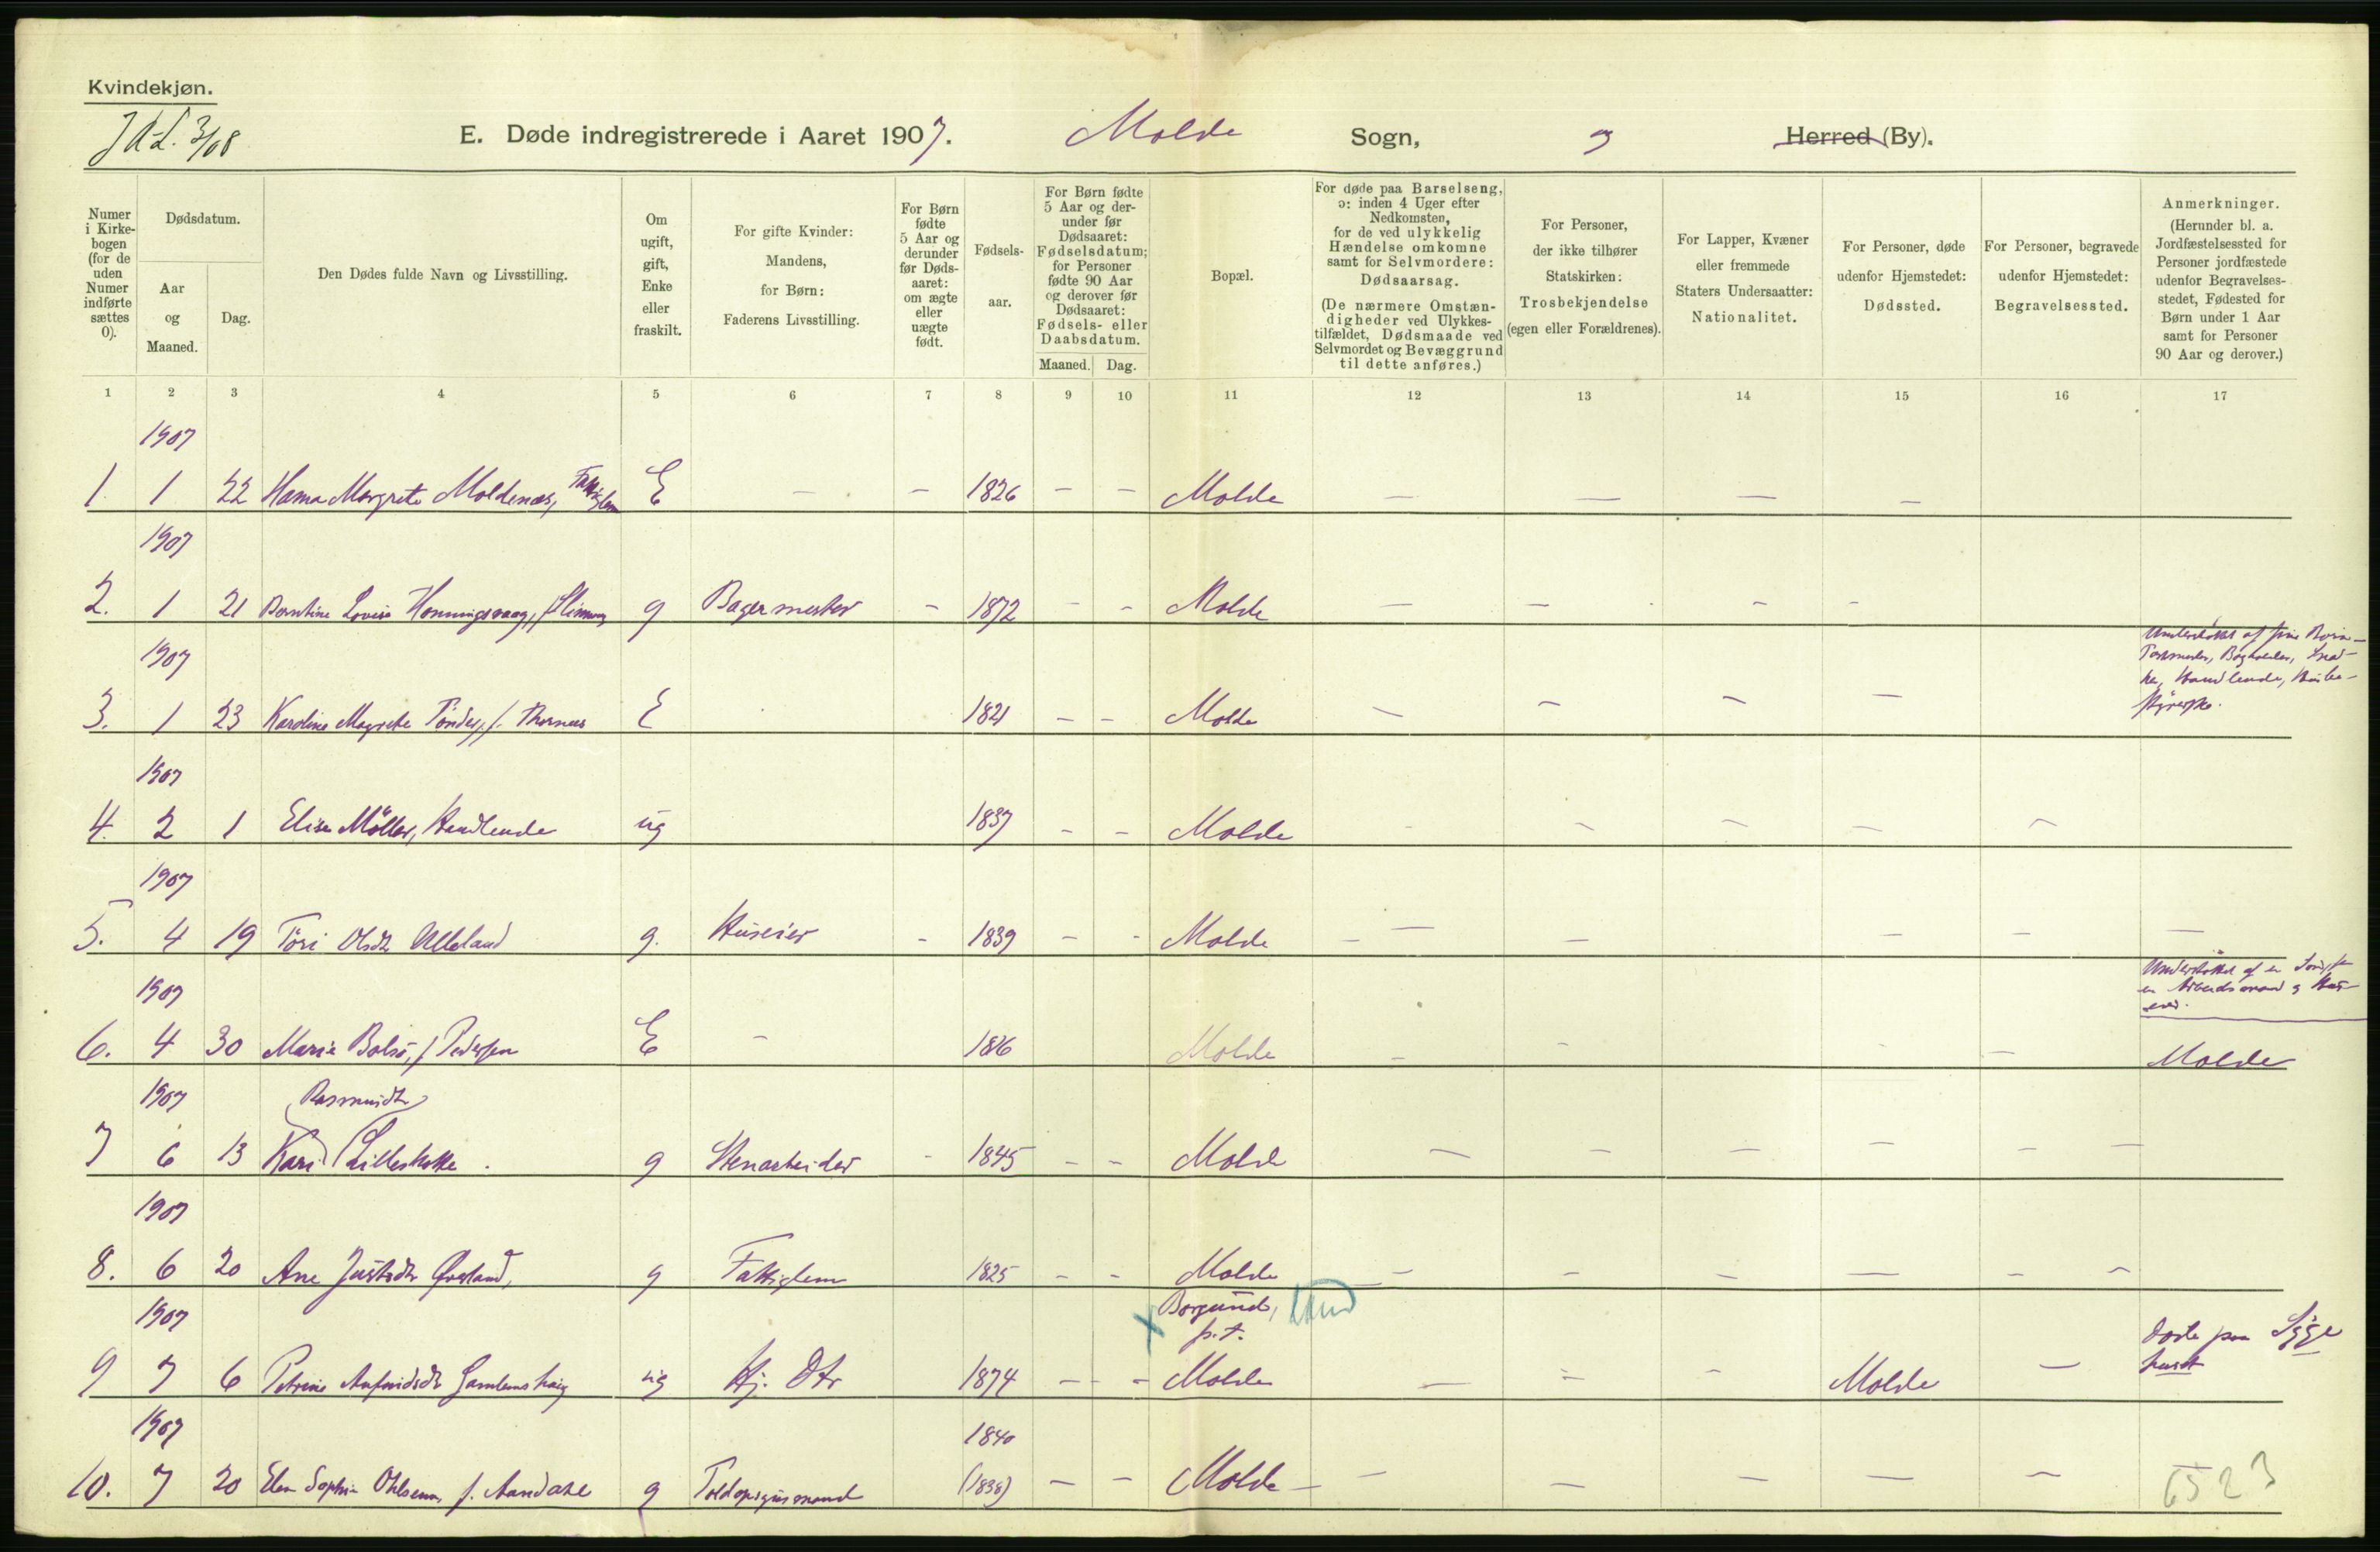 Kvindekjøn.
3/08
E. Døde indregistrerede i Aaret 1907. Molde Sogn, og Herred (By).
Numer i Kirke-bogen (for de uden Numer indførte sættes 0).
Dødsdatum.
Aar og Maaned.
Dag.
Den Dødes fulde Navn og Livsstilling.
Om ugift, gift, Enke eller fraskilt.
For gifte Kvinder: Mandens, for Børn: Faderens Livsstilling.
For Børn fødte 5 Aar og derunder før Døds-aaret: om ægte eller uægte født.
Fødsels-aar.
For Børn fødte 5 Aar og der-under før Dødsaaret: Fødselsdatum; for Personer fødte 90 Aar og derover før Dødsaaret: Fødsels- eller Daabsdatum.
Maaned. Dag.
Bopæl.
For døde paa Barselseng, ɔ: inden 4 Uger efter Nedkomsten, for de ved ulykkelig Hændelse omkomne samt for Selvmordere: Dødsaarsag.
(De nærmere Omstæn-digheder ved Ulykkes-tilfældet, Dødsmaade ved Selvmordet og Bevæggrund til dette anføres.)
For Personer, der ikke tilhører Statskirken: Trosbekjendelse (egen eller Forældrenes).
For Lapper, Kvæner eller fremmede Staters Undersaatter: Nationalitet.
For Personer, døde udenfor Hjemstedet: Dødssted.
For Personer, begravede udenfor Hjemstedet: Begravelsessted.
Anmerkninger.
(Herunder bl. a. Jordfæstelsessted for Personer jordfæstede udenfor Begravelses-stedet, Fødested for Børn under 1 Aar samt for Personer 90 Aar og derover.)
1 2 3 4 5 6 7 8 9 10 11 12 13 14 15 16 17
1907
1 1 22 Margrete Moldenæs, Fattiglem E – – 1826 – – Molde – – – –
1907
2. 1 21 Lovise Honningsvaag, g Bagermester – 1872 – – Molde – – – –
1907
Understøttet af sine Børn
Handlende,
3. 1 23 Karoline Magrete Tönder, f. E 1821 – – Molde – – – –
1907
4. 2 1 Elise Möller, Handlende ug 1837 – – Molde – – – – –
1907
5. 4 19 Töri Olsdtr g. Huseier – 1839 – – Molde – – – – – –
1907
Understøttet af en
en Arbeidsmand
6. 4 30 Marie Bolsö, f. Pedersen E – Molde – – – – Molde
1907 Rasmusdtr
7 6 13 Kari g Stenarbeider – 1845 – – Molde – – – – – –
1907
8. 6 20 Ane Justsdtr g Fattiglem 1825 – – Molde – – – – – –
1907 Borgund,
p.t.
døde paa Syge
huset
9 7 6 Petrine ug Hj. Dtr 1874 – – – Molde – – – Molde –
1907 1840
10. 7 20 Sophie Ohlsen, f. Aandahl g Toldopsynsmand (1838) – – Molde – – – – – –
6523